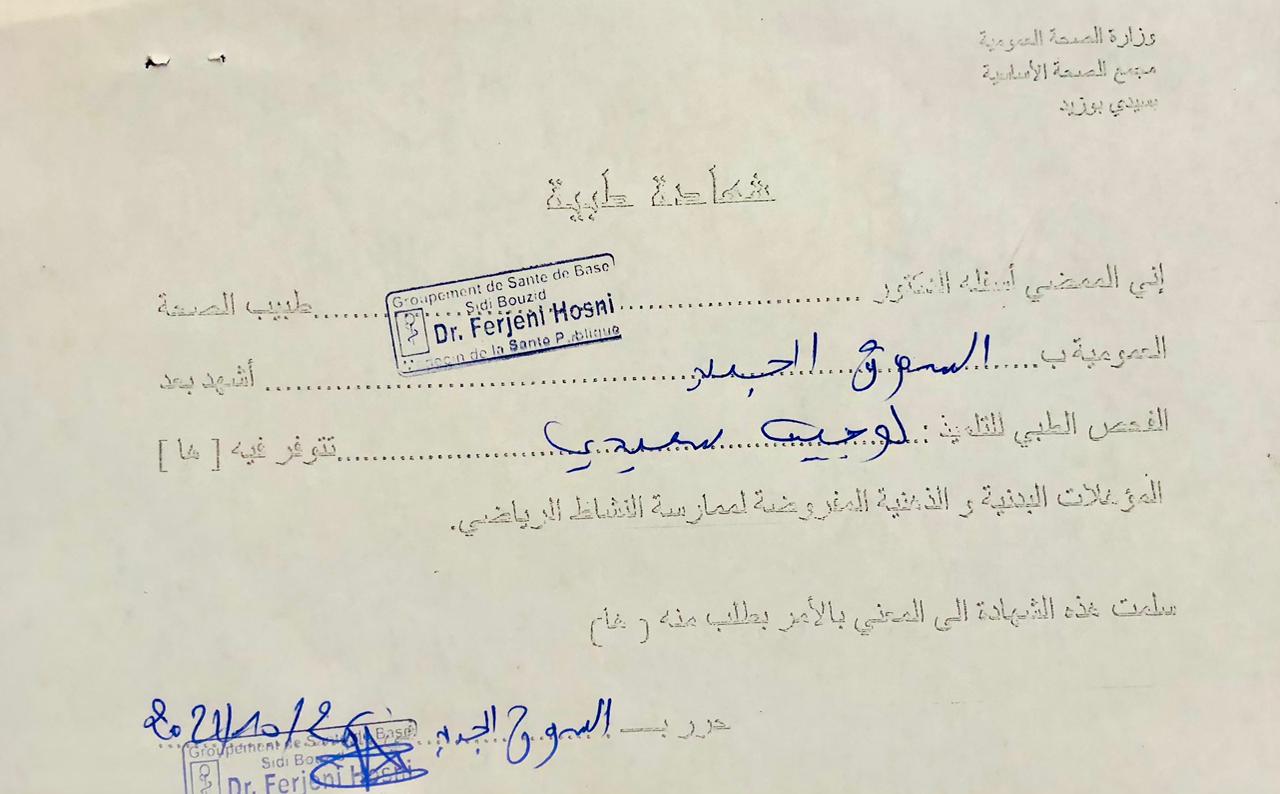 وزارة الصحة العمومية
مجمع الصحة الأساسية
بسيدي بوزيد
شهادة طبية
إني الممضي أسفله الدكتور ............ طبيب الصحة
Groupement de Sante de Base
Sidi Bouzid
Dr. Ferjeni Hosni
de la Sante Publique
العمومية ب ..... السوق الجديد ............ أشهد بعد
الفحص الطبي للتلميذ : لوجين سعيدي ............ تتوفر فيه [ ها ]
المؤهلات البدنية و الذهنية المفروضة لممارسة النشاط الرياضي.
سلمت هذه الشهادة الى المعني بالأمر بطلب منه ( ها )
حرر بـ السوق الجديد 2021/10/26
Groupement de Sante de Base
Sidi Bouzid
Dr. Ferjeni Hosni